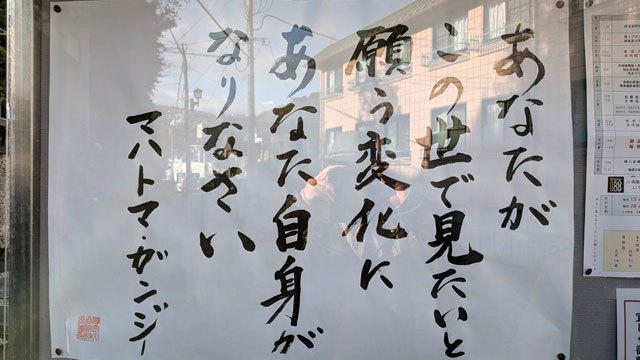 あなたが
この世で見たいと
願う変化に
あなた自身が
なりなさい
マハトマ・ガンジー